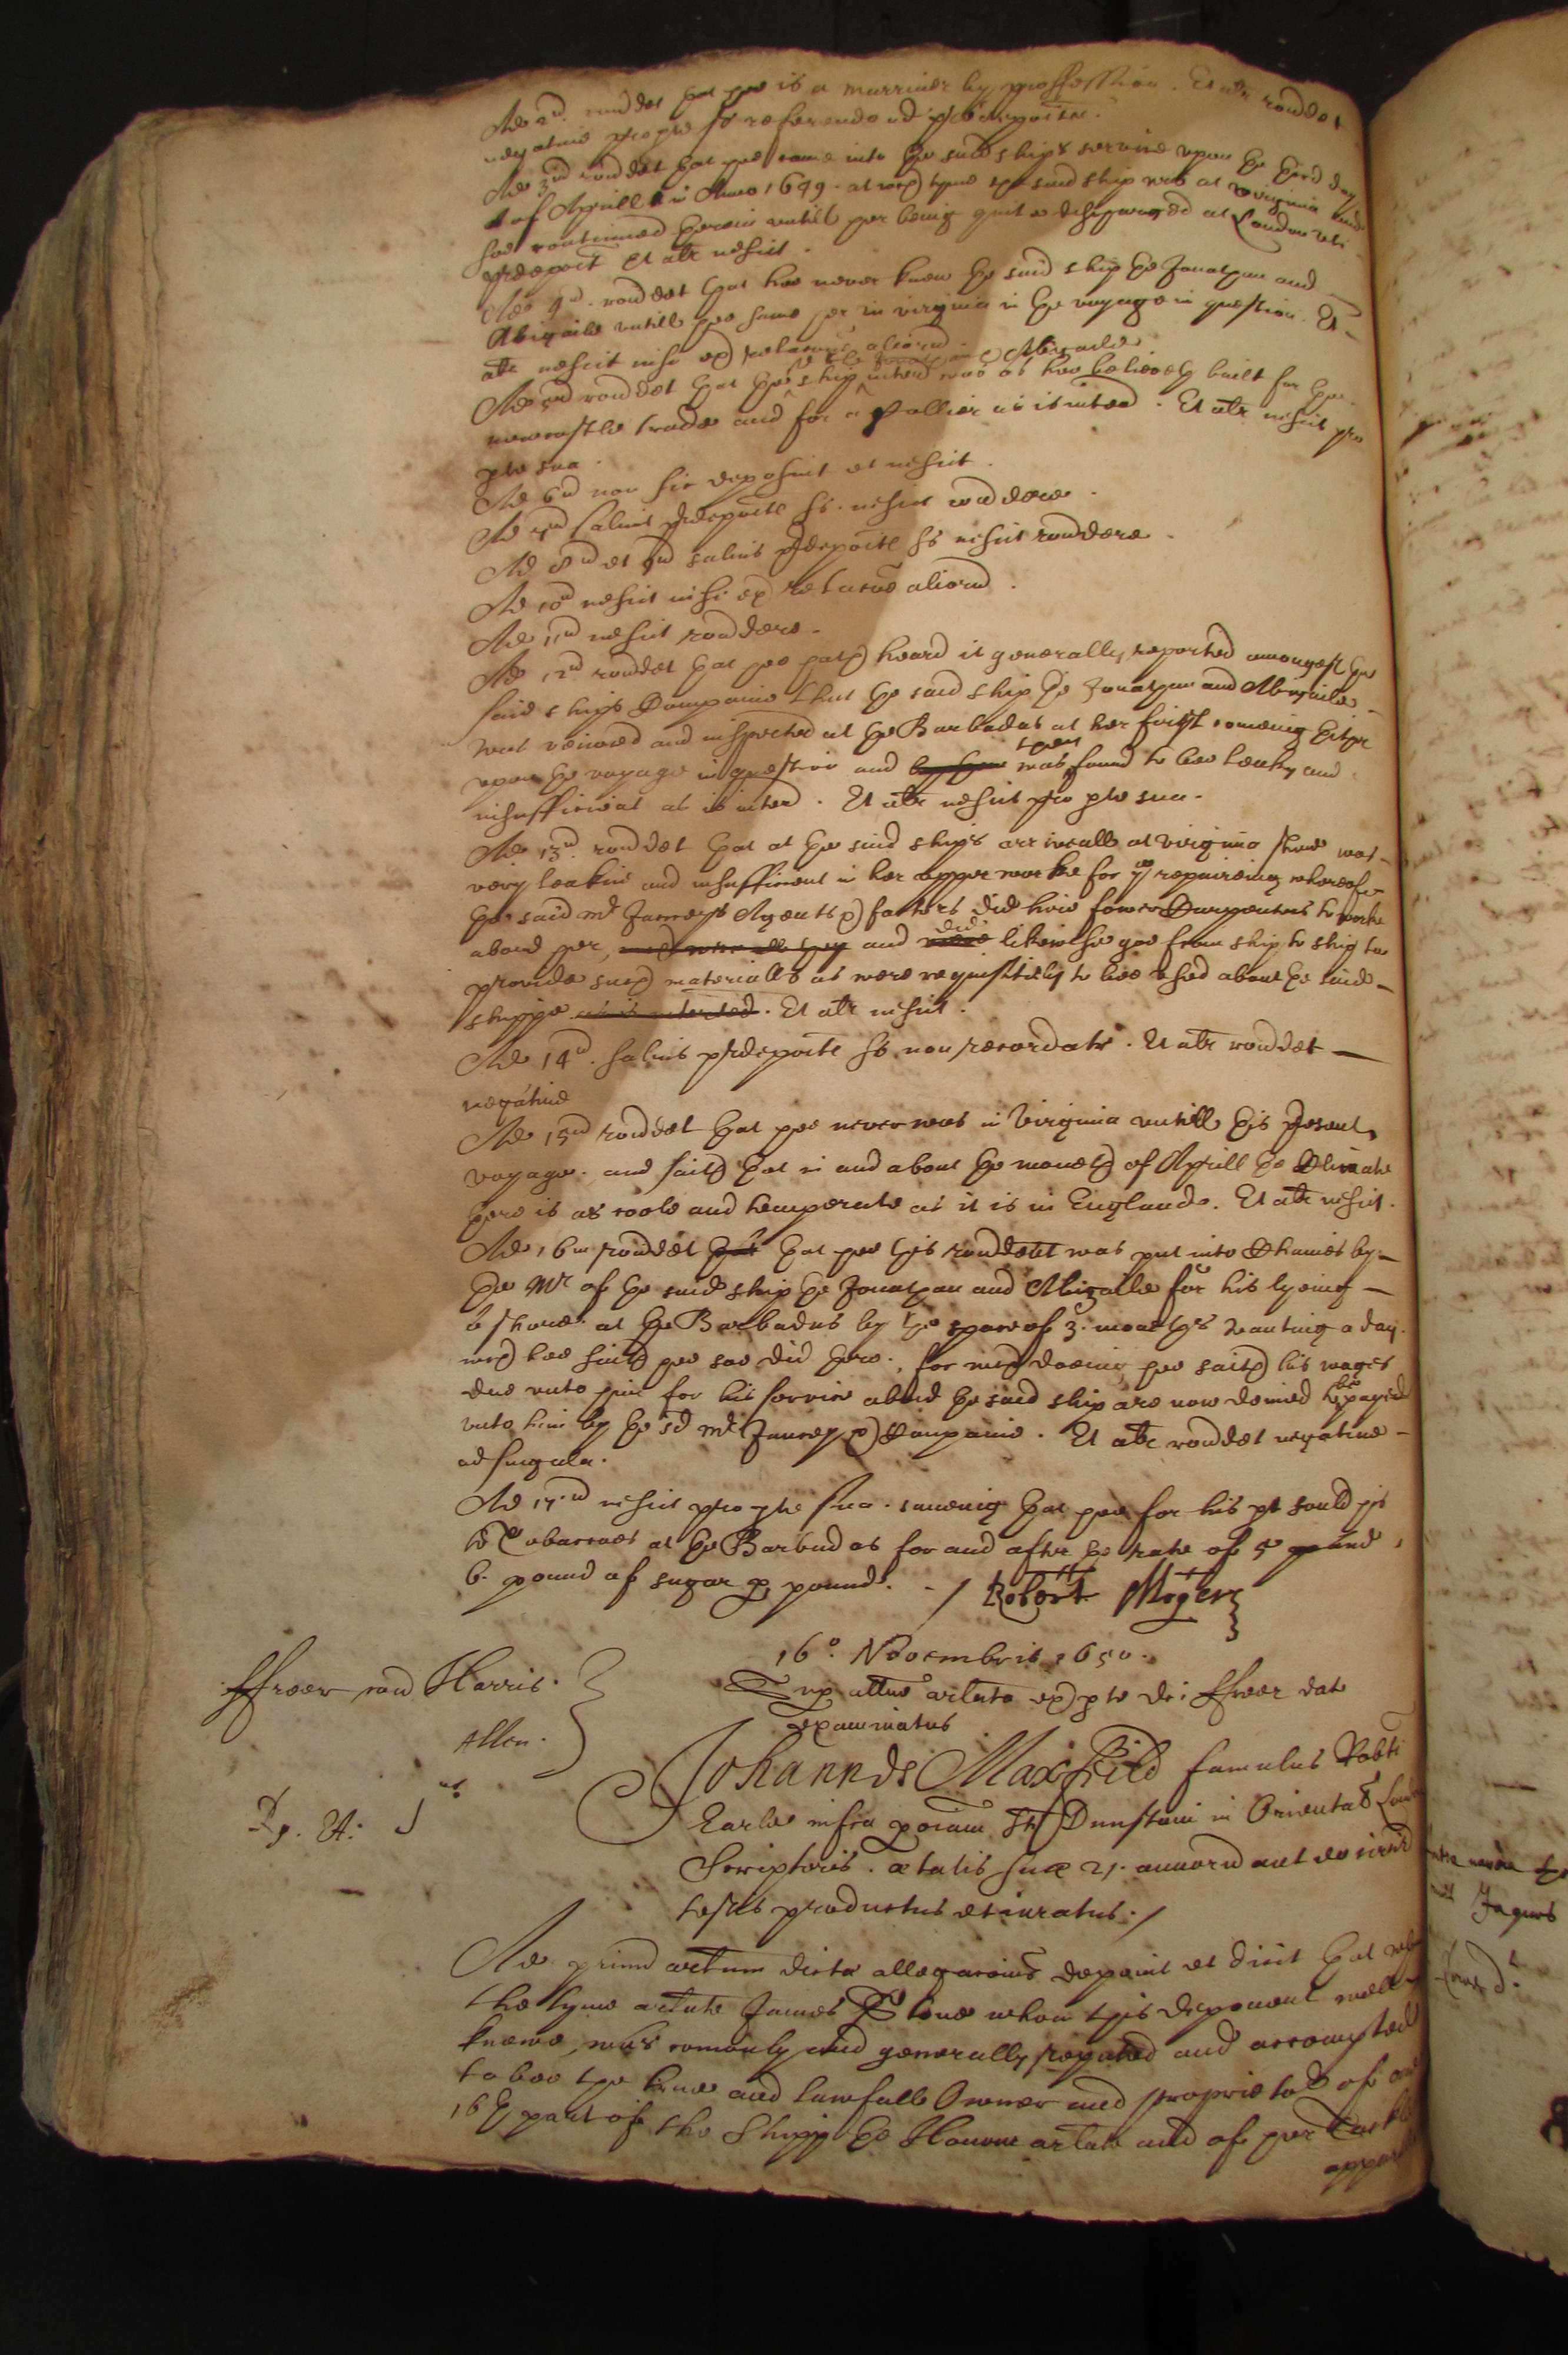 Ad 2d. rondet that hee is a marriner by proffession. Et altr rondet
negative pro pte so referendo ad pdeposita.
Ad 3ud rondet that hee came into the said ships service upon the third day
of Aprill in Anno 1649. at wch tyme the said ship was at virginia and
soe continued therein untill her being quit & discharged at London uti
pdeposit Et altr nescit.
Ad 4ud. rondet that hee never knew the said ship the Jonathan and
Abigaile untill hee sawe her in virginia in the voyage in question. Et
altr nescit nisi ex relatione aliorum.
Ad 5ud rondet that the ship the Jonathan & Abigaile interd was as hee beleiveth built for the
newcastle trade and for a Collier as is interd. Et altr nescit pro
pte sua.
Ad 6ud non sic deposuit et nescit.
Ad 7ud salvis pdepoitis ss. nescit rondere.
Ad 8ud et 9ud salvis pdepoitis ss nescit rondere.
Ad 10ud nescit nisi ex relatione aliorum.
Ad 11ud nescit rondere.
Ad 12ud rondet that hee hath heard it generally reported amongest the
said ships Companie that the said ship the Jonathan and Abigaile
was veiwed and inspected at the Barbadas at her first comeing thither
upon the voyage in question and by them was then found to bee leaky and
insufficient as is interd. Et altr nescit pro pte sua.
Ad 13ud. rondet that at the said ships arrivall at virginia shee was
very leakie and insufficient in her upper worke for ye repaireing whereof
the said mr Jannseys Agents & factors did hire fower Carpenters to worke
abord her, and were all they and were did likewise goe from ship to ship to
provide such materialls as were requisitely to bee used about the said
shippe as is interted. Et altr nescit.
Ad 14ud. salvis pdepoitis ss non recordatr. Et altr rondet
negative
Ad 15ud rondet that hee never was in Virginia untill this present
voyage. and saith that in and about the moneth of Aprill the Climate
there is as coole and temperate as it is in England. Et altr nescit.
Ad 16um rondet that that hee this rondent was put into Chaines by
the Mr of the said ship the Jonathan and Abigaile for his lyeing
a shore at the Barbadus by the space of 3. moneths wanting a day.
wch hee saith hee soe did there. for wch doeing hee saith his wages
due unto him for his service abord the said ship are now denied to bee payed
unto him by the sd mr Janney & Companie. Et altr rondet negative
ad singula.
Ad 17ud nescit pro pte sua. saveing that hee for his pt sould his
tobaccoes at the Barbud as for and after the rate of 5 pound
6. pound of sugar p pound. -/ Robert Moger
16o. Novembris 1650.
ffreer cond Harris.
Allen.
Sup allne arlata ex pte dci ffreer dat
examinatus
Rp. A. Jus
Johannes Maxfeild famulus Robti
Earle infra poiam Sti Dunstani in Orientali Lond
Scriptoris. ætatis suæ 21. annorum aut eo circiter
testis productus et iuratus./
Ad primum artum dicte allegationis deponit et dicit that
the tyme arlate James Stone whom this deponent well
knewe, was comonly and generally reputed and accompted
to bee the true and lawfull Owner and proprietor of one
16th part of the Shipp the Honour arlate and of her Tackle
appare